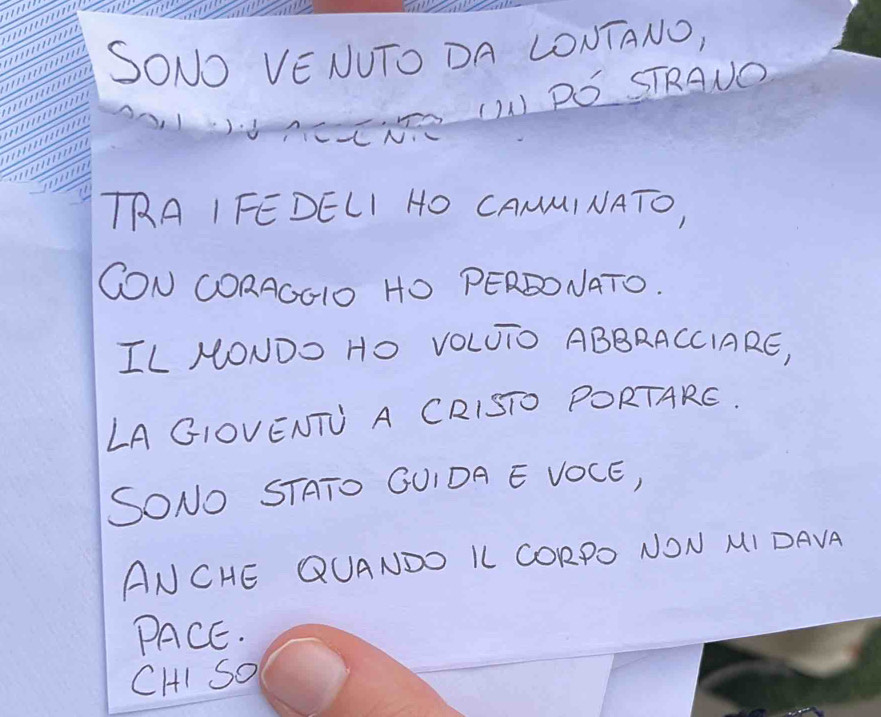 SONO VENUTO DA LONTANO,
UN PÓ STRANO
TRA I FEDELI HO CAMMINATO,
CON CORAGGIO HO PERDONATO.
IL MONDO HO VOLUTO ABBRACCIARE,
LA GIOVENTÙ A CRISTO PORTARE.
SONO STATO GUIDA E VOCE,
ANCHE QUANDO IL CORPO NON MI DAVA
PACE.
CHI SO